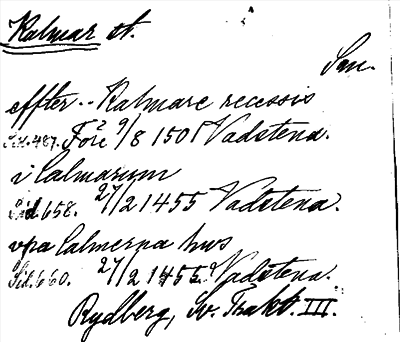 Kalmar st.
Sm.
effter -- Kalmare recessis
Sid. 487. Före 9/8 1501 Vadstena.
i Calmarum
Sid. 658. 27/2 1455 Vadstena.
vpa Calmerna hus
Sid. 660. 27/2 1455. Vadstena.
Rydberg, Sv. Trakt. III.